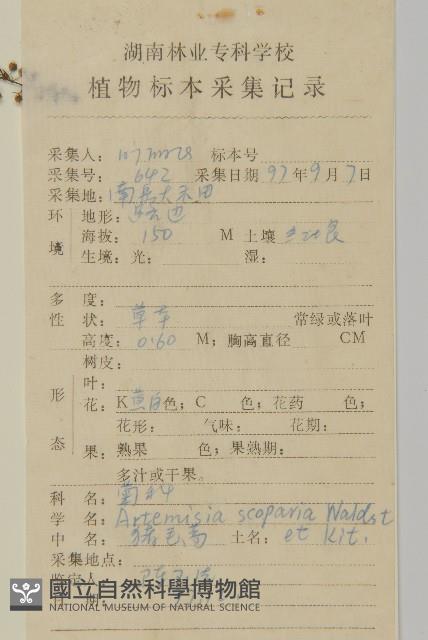 湖南林业专科学校
植物标本采集记录
采集人: 标本号
采集号: 642 采集日期 97年9月7日
采集地:
环境 地形: 边
海拔: 150 M 土壤
生境: 光: 湿:
多度:
性状: 草本 常绿或落叶
高度: 0.60 M; 胸高直径 CM
树皮:
形态 叶:
花: K黄白色; C 色; 花药 色;
花形: 气味: 花期:
果: 熟果 色; 果熟期:
多汁或干果。
科名: 菊科
学名: Artemisia scoparia Waldst
中名: 猪毛蒿 土名: et Kit.
采集地点:
鉴定人
國立自然科學博物館
NATIONAL MUSEUM OF NATURAL SCIENCE